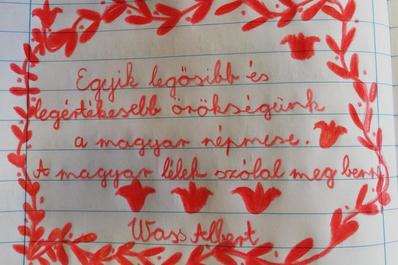 Egyik legősibb és
legértékesebb örökségünk
a magyar népmese.
A magyar lélek szólal meg benn
Wass Albert